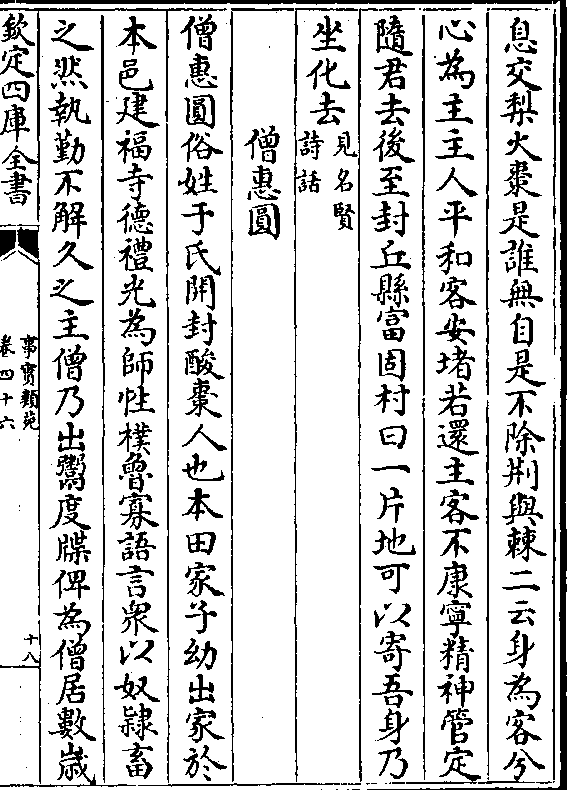 息交梨火棗是誰無自是不除荆與棘二云身為客兮
心為主主人平和客安堵若還主客不康寧精神管定
隨君去後至封丘縣富固村曰一片地可以寄吾身乃
坐化去見名賢
詩話
僧惠圓
僧惠圓俗姓于氏開封酸棗人也本田家子幼出家於
本邑建福寺德禮光為師性樸魯寡語言衆以奴隷畜
之然執勤不解久之主僧乃出鬻度牒俾為僧居數歳
欽定四庫全書
事實類苑
卷四十六
十八